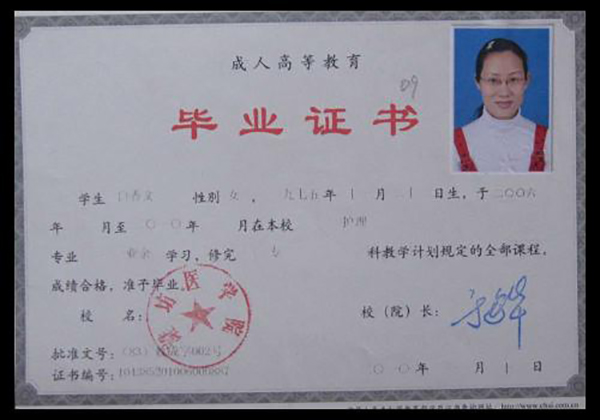 成人高等教育
09
毕业证书
学生 白春文 性别 女, 一九七五年 十 月 二十 日生,于二〇〇六
年 月至二〇一〇年 月在本校 护理
专业 业余 学习,修完 专 科教学计划规定的全部课程,
成绩合格,准予毕业。
校 名: 校(院)长:
潍坊医学院
批准文号:(83)教成字002号
证书编号: 二〇一〇年 月 日
http://www.chsi.com.cn